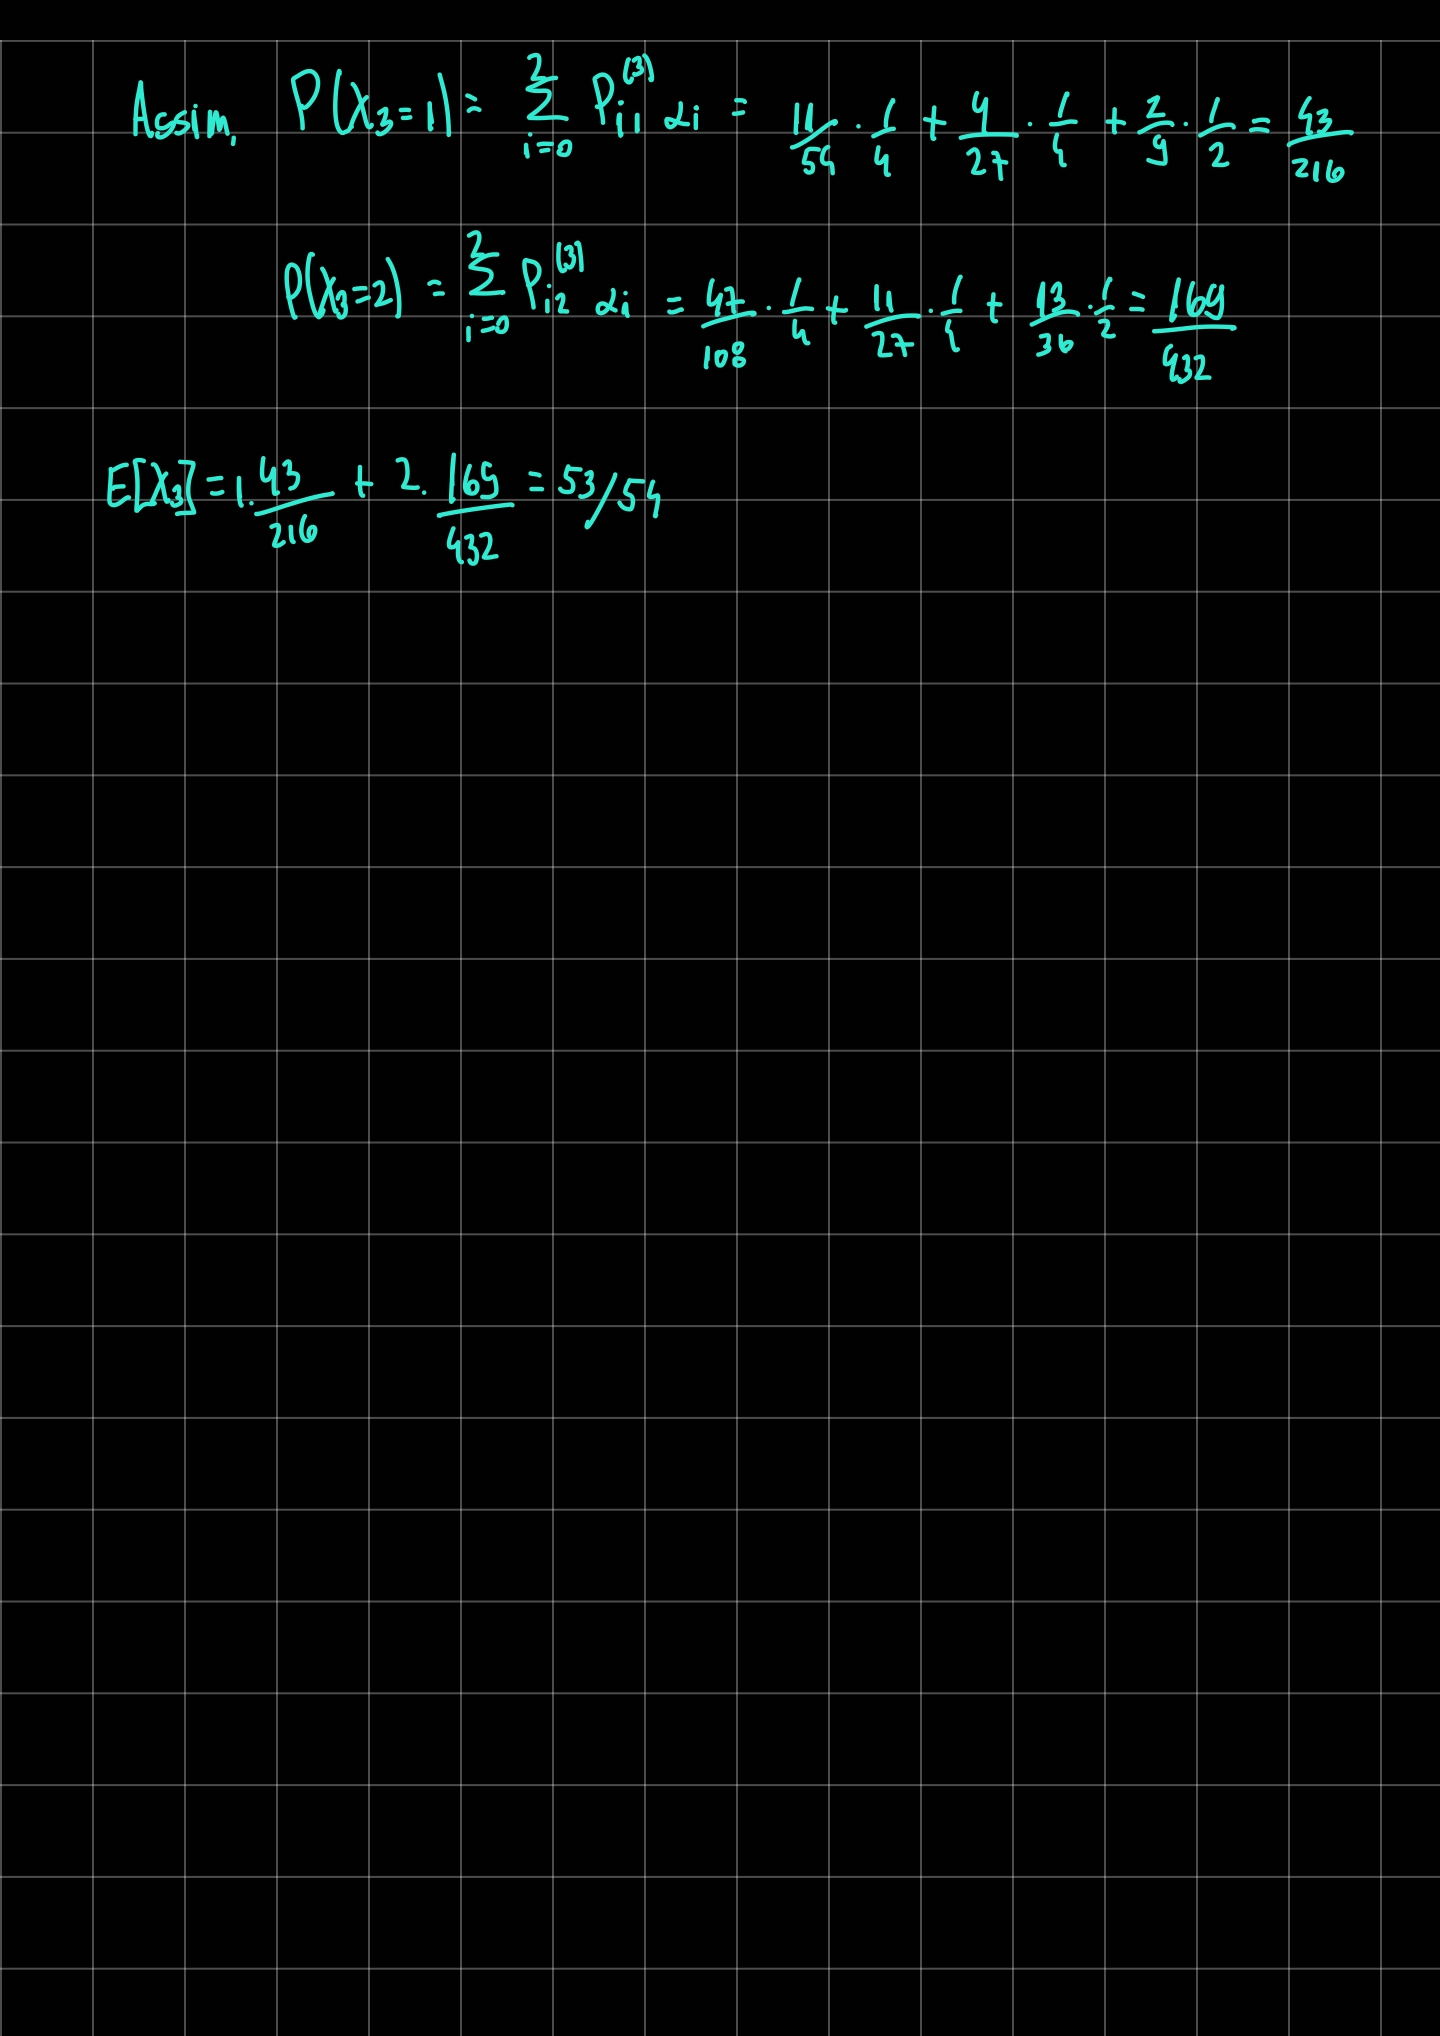 Assim, P(X₃=1) = ∑_{i=0}^{2} P_{i1}^{(3)} αi = 11/54 · 1/4 + 4/27 · 1/4 + 2/9 · 1/2 = 43/216
P(X₃=2) = ∑_{i=0}^{2} P_{i2}^{(3)} αi = 47/108 · 1/4 + 11/27 · 1/4 + 13/36 · 1/2 = 169/432
E[X₃] = 1 · 43/216 + 2 · 169/432 = 53/54